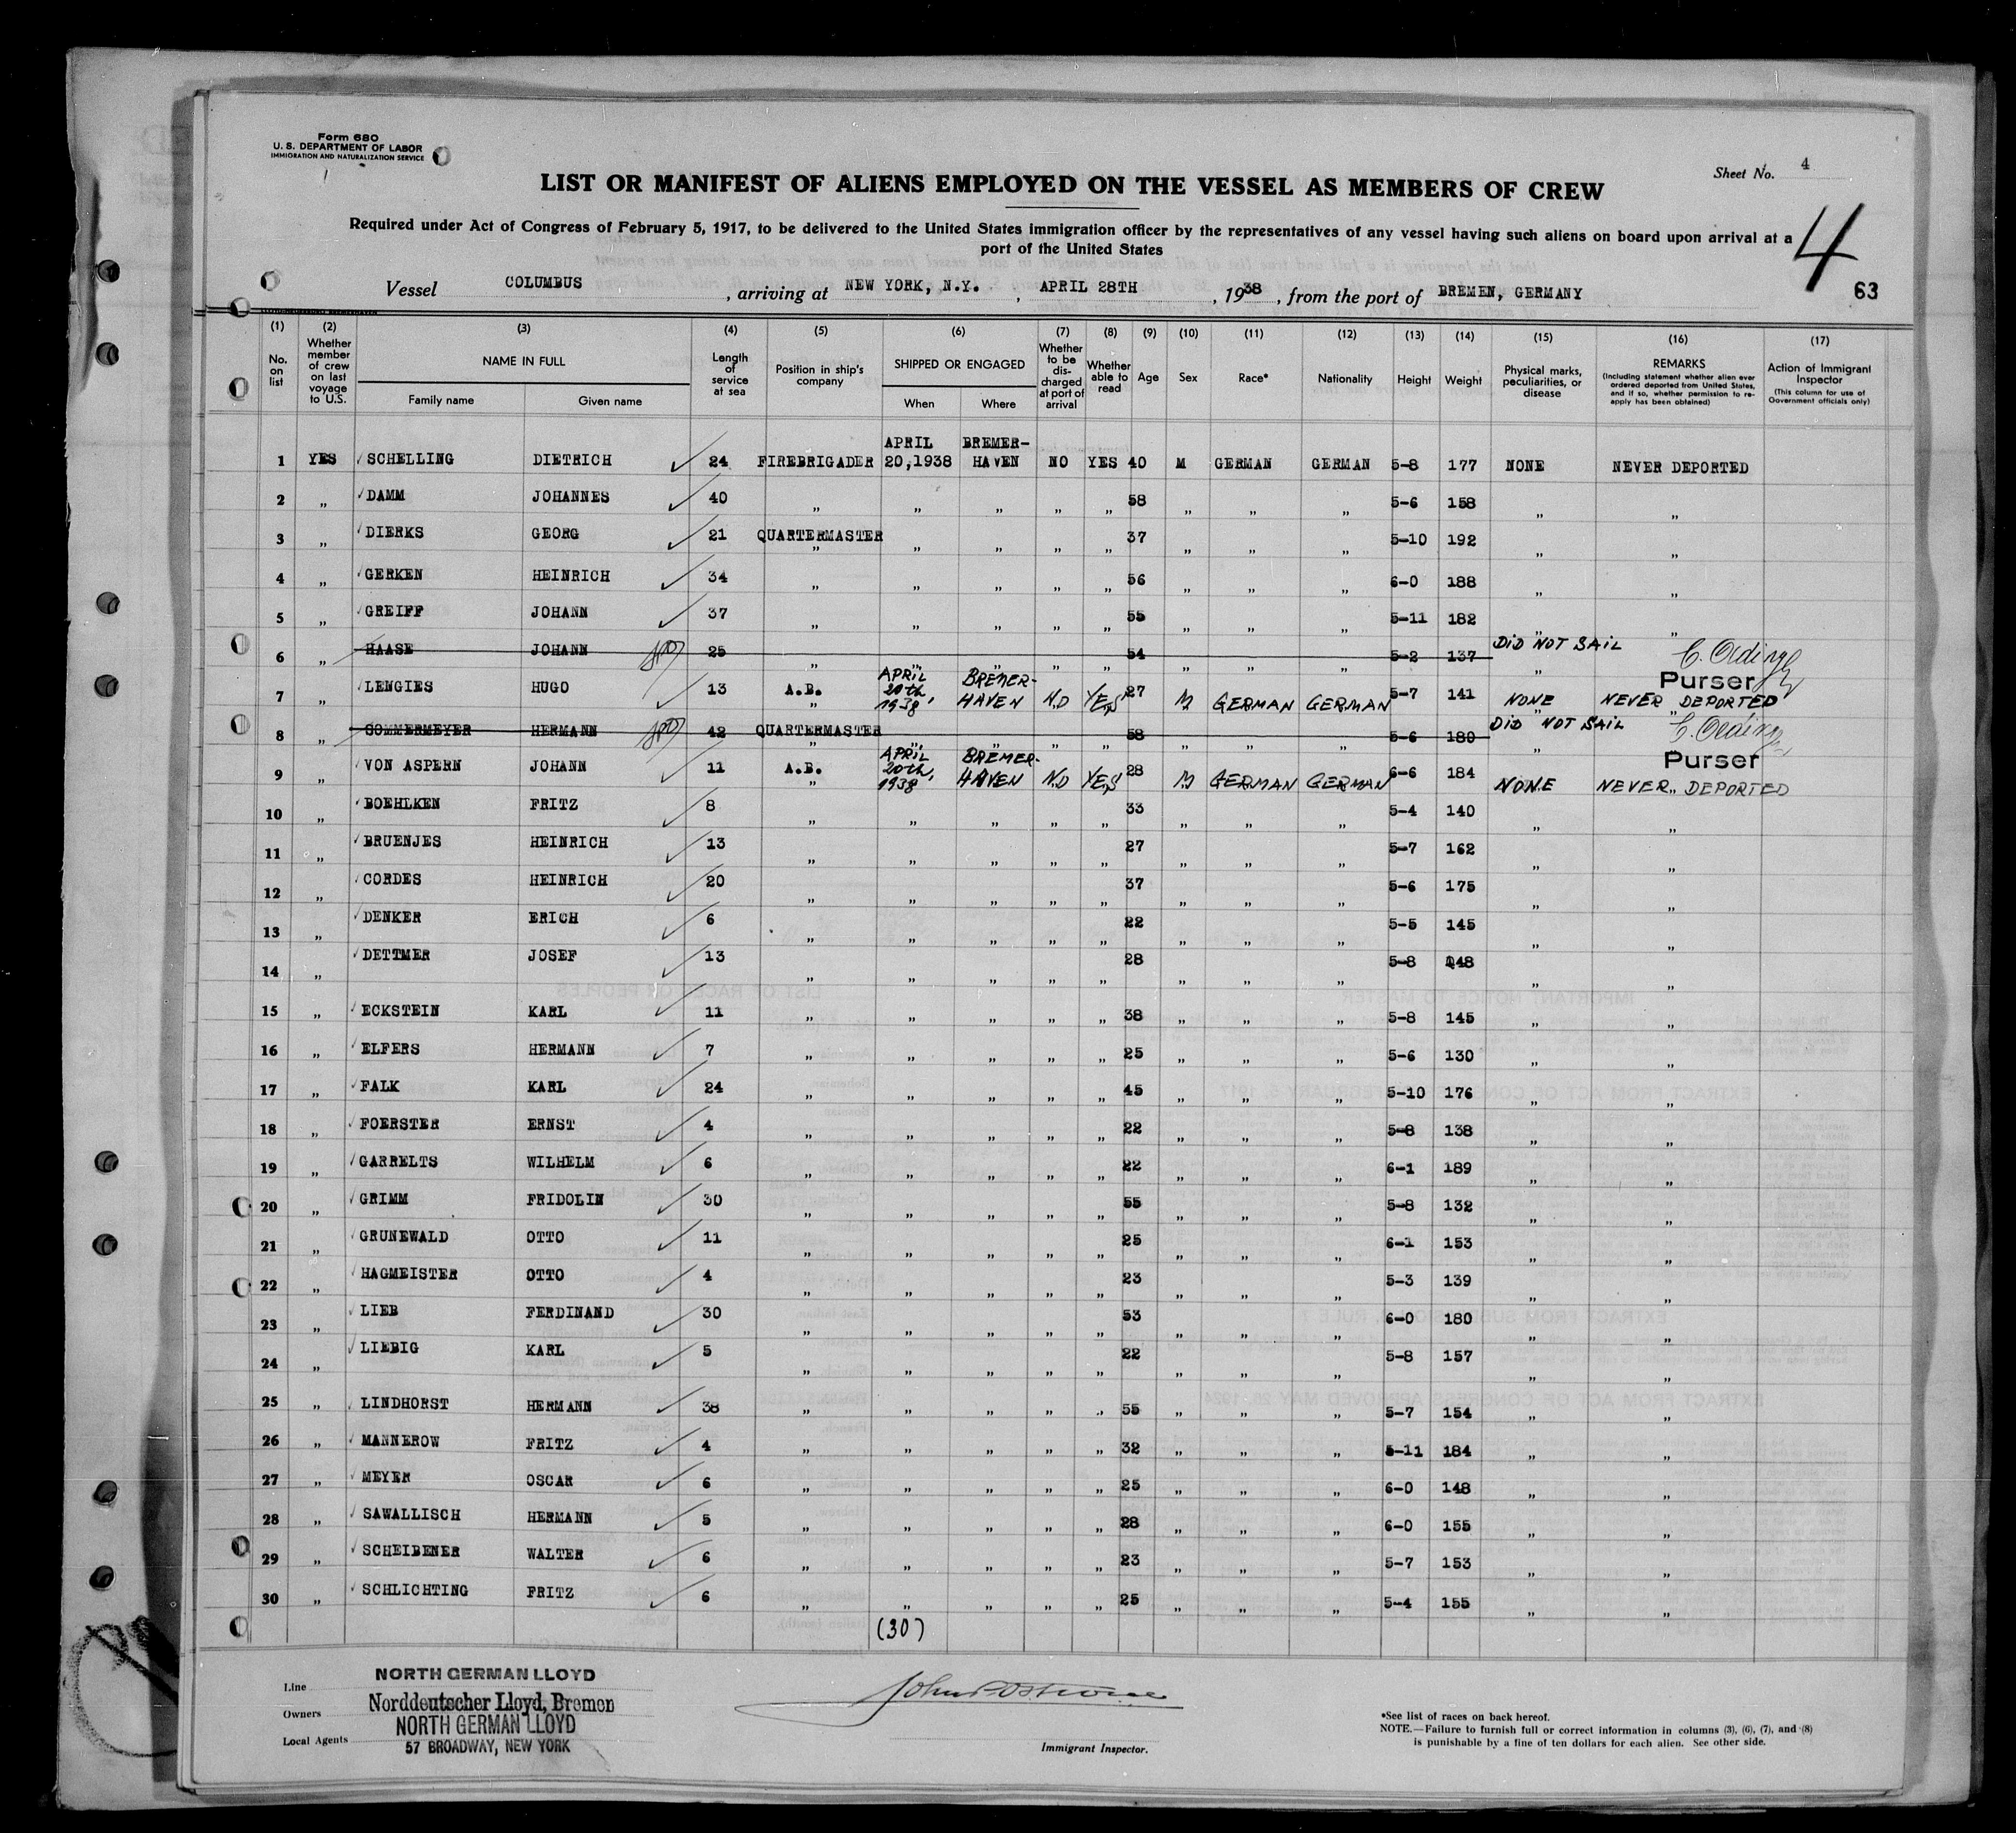 Form 680
U. S. DEPARTMENT OF LABOR
IMMIGRATION AND NATURALIZATION SERVICE
Sheet No. 4
LIST OR MANIFEST OF ALIENS EMPLOYED ON THE VESSEL AS MEMBERS OF CREW
Required under Act of Congress of February 5, 1917, to be delivered to the United States immigration officer by the representatives of any vessel having such aliens on board upon arrival at a
port of the United States
4
63
Vessel COLUMBUS, arriving at NEW YORK, N.Y., APRIL 28TH, 1938, from the port of BREMEN, GERMANY
(1) (2) (3) (4) (5) (6) (7) (8) (9) (10) (11) (12) (13) (14) (15) (16) (17)
No. on list
Whether member of crew on last voyage to U.S.
NAME IN FULL
Family name Given name
Length of service at sea
Position in ship's company
SHIPPED OR ENGAGED
When Where
Whether to be discharged at port of arrival
Whether able to read
Age
Sex
Race*
Nationality
Height
Weight
Physical marks, peculiarities, or disease
REMARKS
(Including statement whether alien ever ordered deported from United States, and if so, whether permission to re-apply has been obtained)
Action of Immigrant Inspector
(This column for use of Government officials only)
1 YES SCHELLING DIETRICH 24 FIREBRIGADER APRIL 20,1938 BREMER-HAVEN NO YES 40 M GERMAN GERMAN 5-8 177 NONE NEVER DEPORTED
2 „ DAMM JOHANNES 40 „ „ „ „ „ 58 „ „ „ 5-6 158 „ „
3 „ DIERKS GEORG 21 QUARTERMASTER „ „ „ „ 37 „ „ „ 5-10 192 „ „
4 „ GERKEN HEINRICH 34 „ „ „ „ „ 56 „ „ „ 6-0 188 „ „
5 „ GREIFF JOHANN 37 „ „ „ „ „ 55 „ „ „ 5-11 182 „ „
6 „ HAASE JOHANN 25 „ „ „ „ „ 54 „ „ „ 5-2 137 DID NOT SAIL
Purser
7 „ LENGIES HUGO 13 A.B. APRIL 20th, 1938 BREMER-HAVEN NO YES 27 M GERMAN GERMAN 5-7 141 NONE NEVER DEPORTED
8 „ SOMMERMEYER HERMANN 42 QUARTERMASTER „ „ „ „ 58 „ „ „ 5-6 180 DID NOT SAIL
Purser
9 „ VON ASPERN JOHANN 11 A.B. APRIL 20th, 1938 BREMER-HAVEN NO YES 28 M GERMAN GERMAN 6-6 184 NONE NEVER DEPORTED
10 „ BOEHLKEN FRITZ 8 „ „ „ „ „ 33 „ „ „ 5-4 140 „ „
11 „ BRUENJES HEINRICH 13 „ „ „ „ „ 27 „ „ „ 5-7 162 „ „
12 „ CORDES HEINRICH 20 „ „ „ „ „ 37 „ „ „ 5-6 175 „ „
13 „ DENKER ERICH 6 „ „ „ „ „ 22 „ „ „ 5-5 145 „ „
14 „ DETTMER JOSEF 13 „ „ „ „ „ 28 „ „ „ 5-8 148 „ „
15 „ ECKSTEIN KARL 11 „ „ „ „ „ 38 „ „ „ 5-8 145 „ „
16 „ ELFERS HERMANN 7 „ „ „ „ „ 25 „ „ „ 5-6 130 „ „
17 „ FALK KARL 24 „ „ „ „ „ 45 „ „ „ 5-10 176 „ „
18 „ FOERSTER ERNST 4 „ „ „ „ „ 22 „ „ „ 5-8 138 „ „
19 „ GARRELTS WILHELM 6 „ „ „ „ „ 22 „ „ „ 6-1 189 „ „
20 „ GRIMM FRIDOLIN 30 „ „ „ „ „ 55 „ „ „ 5-8 132 „ „
21 „ GRUNEWALD OTTO 11 „ „ „ „ „ 25 „ „ „ 6-1 153 „ „
22 „ HAGMEISTER OTTO 4 „ „ „ „ „ 23 „ „ „ 5-3 139 „ „
23 „ LIEB FERDINAND 30 „ „ „ „ „ 53 „ „ „ 6-0 180 „ „
24 „ LIEBIG KARL 5 „ „ „ „ „ 22 „ „ „ 5-8 157 „ „
25 „ LINDHORST HERMANN 38 „ „ „ „ „ 55 „ „ „ 5-7 154 „ „
26 „ MANNEROW FRITZ 4 „ „ „ „ „ 32 „ „ „ 5-11 184 „ „
27 „ MEYER OSCAR 6 „ „ „ „ „ 25 „ „ „ 6-0 148 „ „
28 „ SAWALLISCH HERMANN 5 „ „ „ „ „ 28 „ „ „ 6-0 155 „ „
29 „ SCHEIBENER WALTER 6 „ „ „ „ „ 23 „ „ „ 5-7 153 „ „
30 „ SCHLICHTING FRITZ 6 „ „ „ „ „ 25 „ „ „ 5-4 155 „ „
(30)
Line NORTH GERMAN LLOYD
Owners Norddeutscher Lloyd, Bremen
Local Agents NORTH GERMAN LLOYD
57 BROADWAY, NEW YORK
Immigrant Inspector.
*See list of races on back hereof.
NOTE.—Failure to furnish full or correct information in columns (3), (6), (7), and (8)
is punishable by a fine of ten dollars for each alien. See other side.